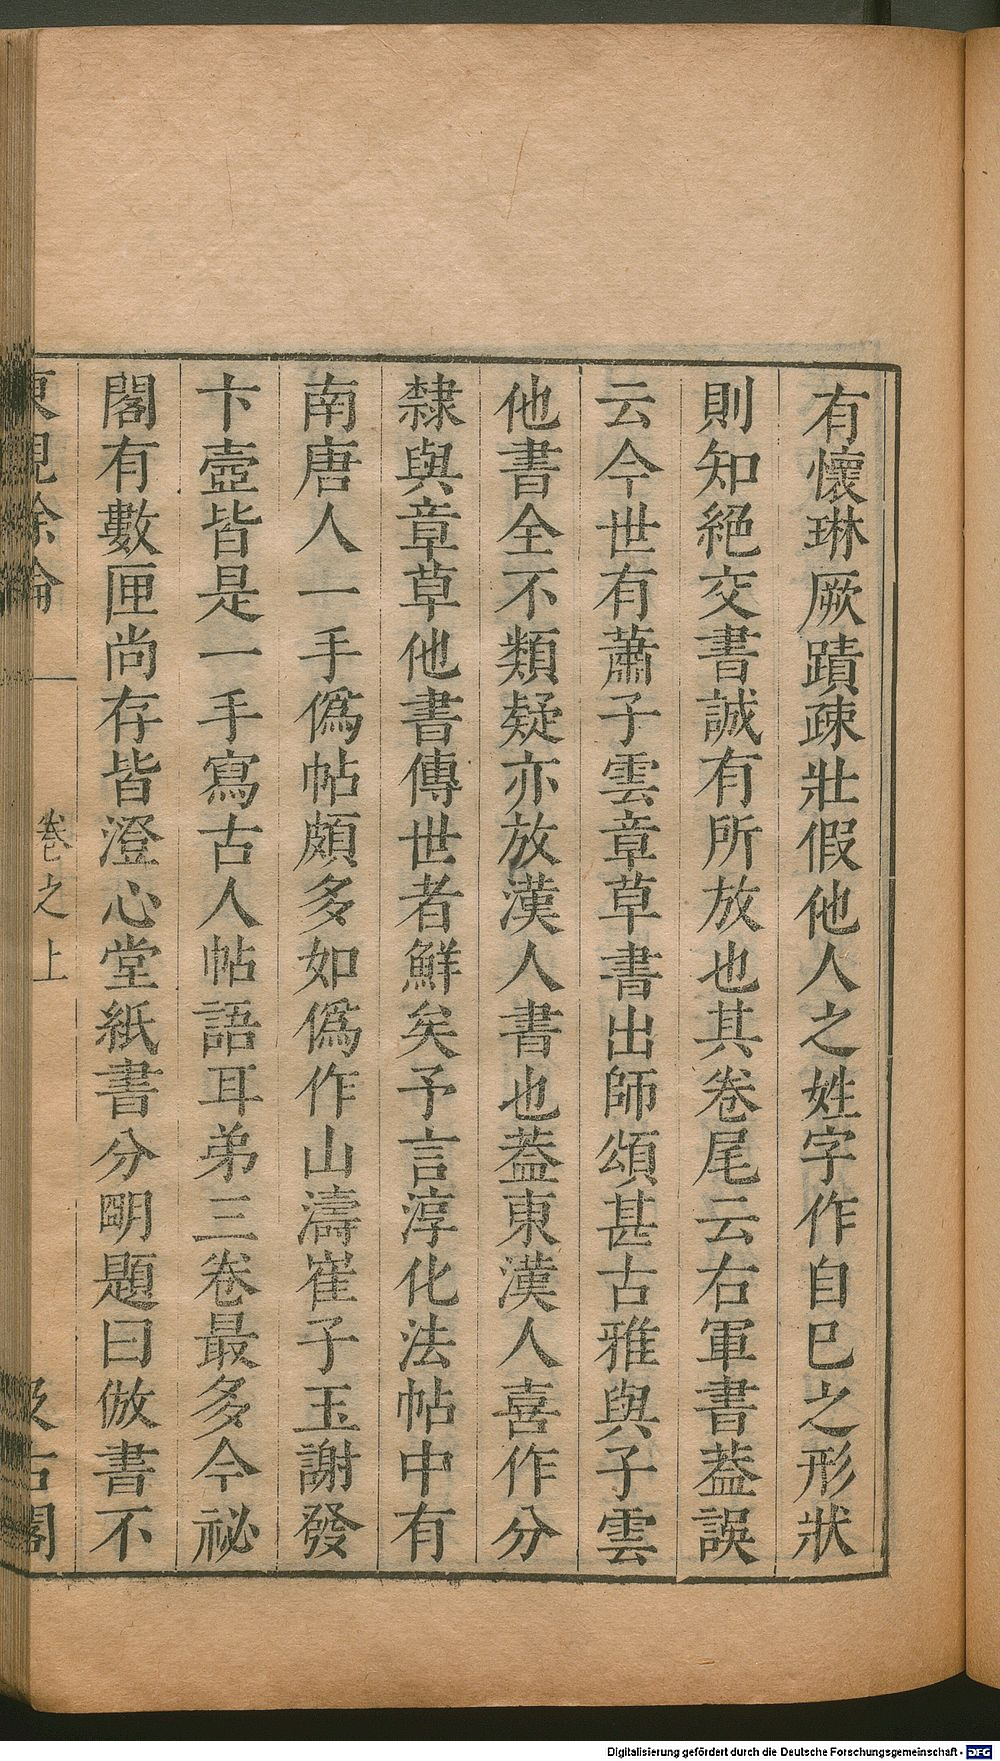 有懷琳厥蹟疎壯假他人之姓字作自巳之形狀
則知絕交書誠有所放也其卷尾云右軍書葢誤
云今世有蕭子雲章草書出師頌甚古雅與子雲
他書全不類疑亦放漢人書也葢東漢人喜作分
隸與章草他書傳世者鮮矣予言淳化法帖中有
南唐人一手僞帖頗多如僞作山濤崔子玉謝發
卞壼皆是一手寫古人帖語耳弟三卷最多今祕
閣有數匣尚存皆澄心堂紙書分眀題曰倣書不
東觀餘論
卷之上
汲古閣
Digitalisierung gefördert durch die Deutsche Forschungsgemeinschaft - DFG